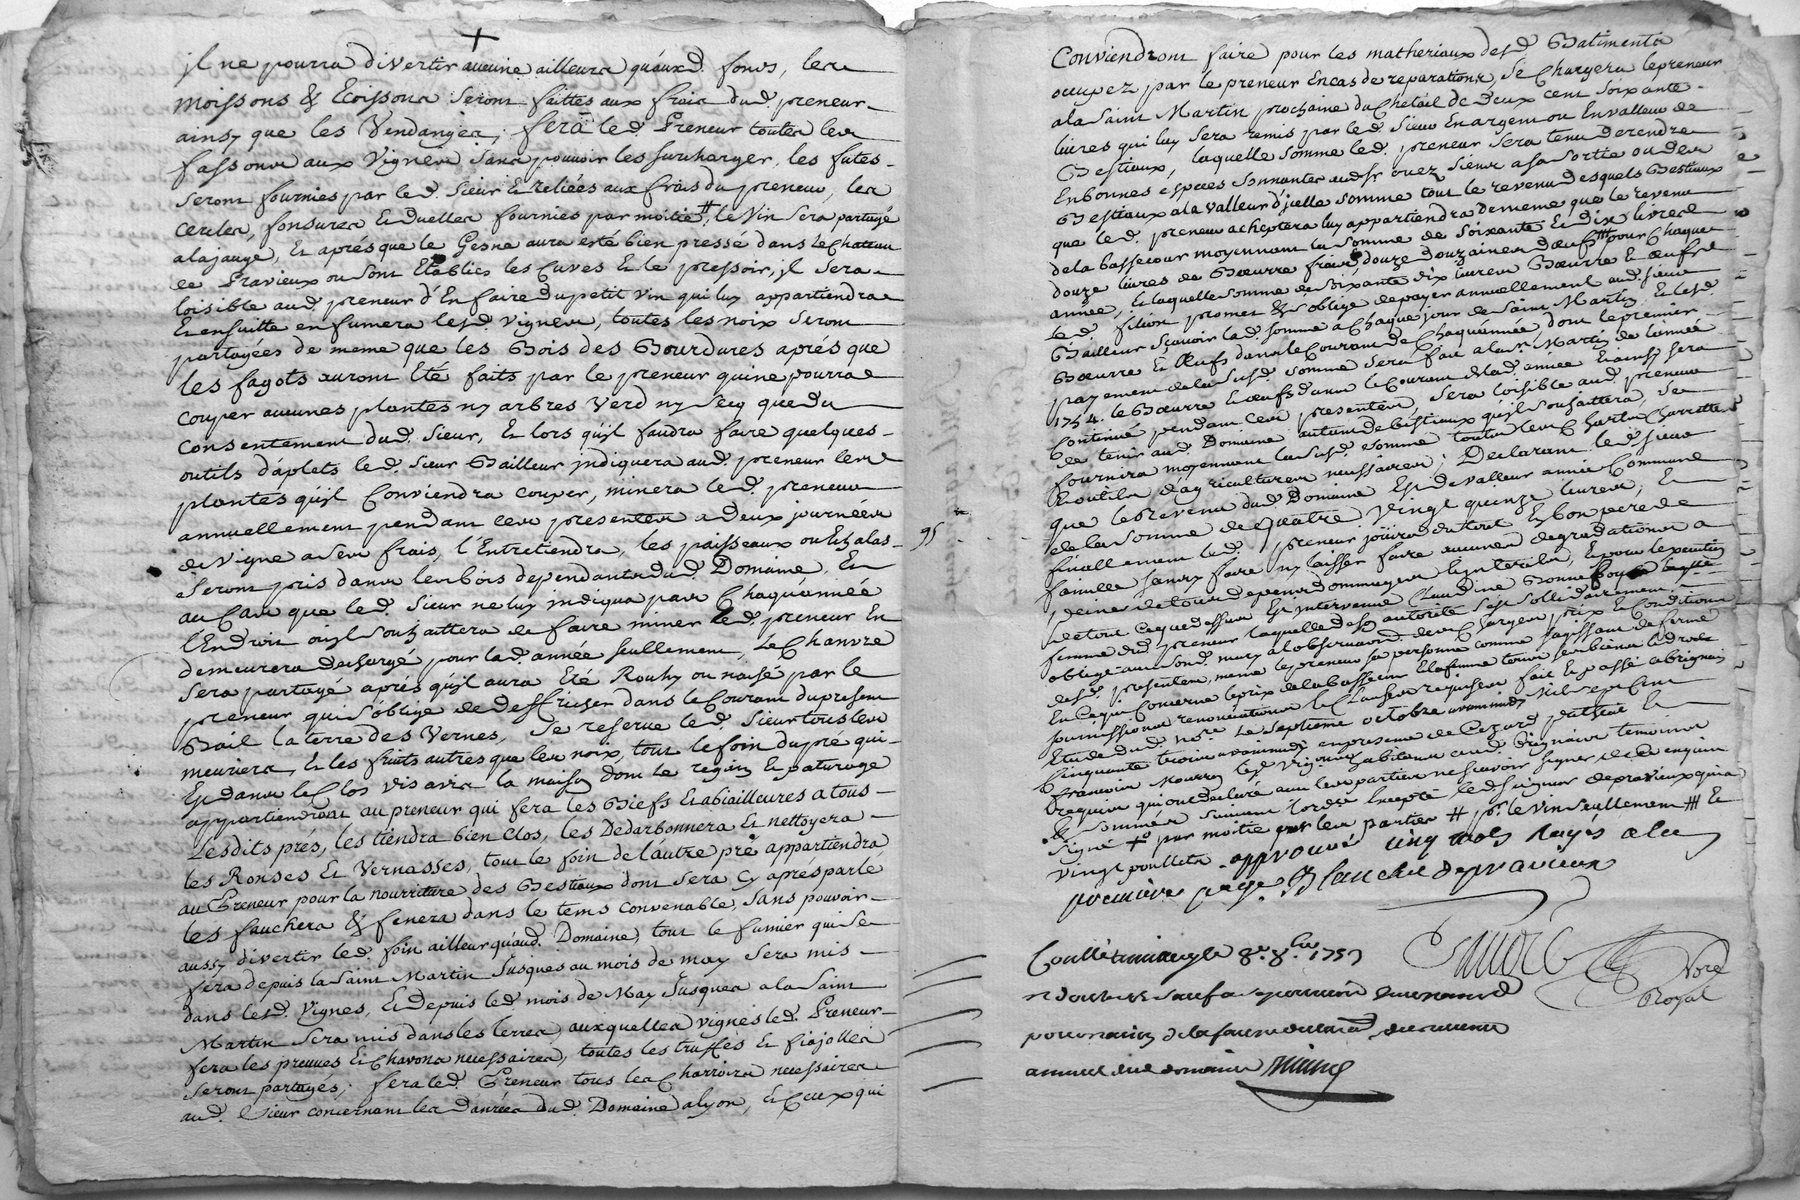 +
jl ne pourra divertir aucune ailleurs qu'auxd. fonds, les
moissons & Ecoissons seront faittes aux frais dud. preneur
ainsy que les Vendanges, fera led. Preneur toutes les
fassons aux vignes sans pouvoir les surcharger, les futes
seront fournies par led. sieur & reliées aux frais du preneur, les
cercles, fonsures et duelles fournies par moitié # le vin sera partagé
alajauge, Et aprés que le Gesne aura esté bien pressé dans le Chateau
de Pravieux ou sont Etablies les Cuves Et le pressoir, jl sera
loisible aud. preneur d'En faire du petit vin qui luy appartiendra
Et ensuitte en fumera lesd. vignes, toutes les noix seront
partagées de meme que les Bois des Bourdures aprés que
les fagots auront Eté faits par le preneur qui ne pourra
couper aucunes plantes ny arbres Verd ny secq que du
consentement dud. sieur, Et lors qu'jl faudra faire quelques
outils d'aplets led. sieur Bailleur jndiquera aud. preneur les
plantes qu'jl Conviendra couper, minera led. preneur
annuellement pendant les presentes a deux journées
de vigne a ses frais, l'Entretiendra, les paisseaux ou Echalas
seront pris dans les bois dependants dud. Domaine, Et
au Cas que led. sieur ne luy jndiqua pas Chaqu'année
l'Endroit ou jl souhaittera de faire miner led. preneur En
demeurera decharge pour lad. année seullement, Le Chanvre
sera partagé aprés qu'jl aura Eté Rouhy ou naisé par le
preneur qui s'oblige de deffrisser dans le Courant du present
Bail la terre des Vernes, se reserve led. sieur tous les
meuriers, Et les fruits autres que les noix, tout le foin du pré qui
Est dans le Clos vis avis la maison dont le regain Et paturage
appartiendront au preneur qui fera les Biefs Et abiailleures a tous
Lesdits prés, les tiendra bien clos, les Dedarbonnera Et nettoyera
les Ronses Et Vernasses, tout le foin de l'autre pré appartiendra
au Preneur pour la nourriture des Bestiaux dont sera Cy aprés parlé
les fauchera & fenera dans le tems convenable, sans pouvoir
aussy divertir led. foin ailleur qu'aud. Domaine, tout le fumier qui se
fera depuis la saint Martin jusques au mois de may sera mis
dans lesd. vignes, Et Depuis led. mois de May jusques a la saint
Martin sera mis dans les terres, auxquelles vignes led. Preneur
fera les preuues Et Chavons necessaires, toutes les truffes Et fiajolles
seront partagés, fera led. Preneur tous les Charrois necessaires
aud. sieur concernant les danrées dud. Domaine a lyon, Et Ceux qui
Conviendront faire pour les matheriaux desd. Batiments
occupez par le preneur En cas de reparations, se Chargera le preneur
a la saint Martin prochaine du Chetail de deux cent soixante
livres qui luy sera remis par led. sieur En argent ou En valleur de
Bestiaux, laquelle somme led. preneur sera tenu de rendre
En bonnes especes sonnantes aud. sieur a sa sortie ou des
Bestiaux a la valleur d'jcelle somme tout le revenu desquels Bestiaux
que led. preneur acheptera luy appartiendra de meme que le revenu
de la bassecour moyennant la somme de soixante Et dix livres
douze livres de Boeurre frais douze douzaines d'oeufs ## pour Chaque
année, Et laquelle somme de soixante dix livres Boeurre Et oeufs
led. filion promet & s'oblige de payer annuellement aud. sieur
Bailleur sçavoir lad. somme a Chaque jour de saint Martin Et led.
Boeurre Et Oeufs dans le Courant de Chaqu'année dont le premier
payement de la susd. somme sera fait a la st. Martin de l'année
1754. le Boeurre Et oeufs dans le Courant de lad. année Et ainsy sera
Continué pendant Ces presentes, sera loisible aud. preneur
de tenir aud. Domaine autant de bestiaux qu'jl souhaittera, se
fournira moyennant la susd. somme toutes les Chars Charrettes
Et outils d'agriculture necessaires; Declarant led. sieur
que le Revenu dud. Domaine Est de valleur année Commune
95 de la somme de quatre vingt quinze livres, Et
finallement led. preneur jouira du tout En bon pere de
famille sans y faire ny laisser faire aucunes degradations a
peine de tous depens dommages Interets, Et pour l'execution
de tout Ce que dessus Est intervenue Claudine Bonne
femme dud. preneur laquelle de son autorité s'est sollidairement
obligé avec sond. mary a l'observation des Charges prix & Conditions
desd. presentes, meme le preneur sa personne comme s'agissant de ferme
En Ce qui Concerne le prix de la basse cour Et la femme tous ses biens a droits
soumissions renonciations & Clauses requises fait Et passé a brignais
Etude dud. nore. Le septieme octobre avant midy Mil sept Cent
Cinquante trois en presence de
françois habitants aud. Brignais temoins
requis qui ont declaré avec les parties ne sçavoir signer de ce enquis
& sommés suivant l'ordce. Excepté led. sieur de pravieux qui a
signé + par moitié par les parties # pr. le vin seullement ## Et
vingt poullets approuvé cinq mots rayés a la
première page. Blanchet depravieux
Conllé 8e. 8bre 1753
Nore
Royal